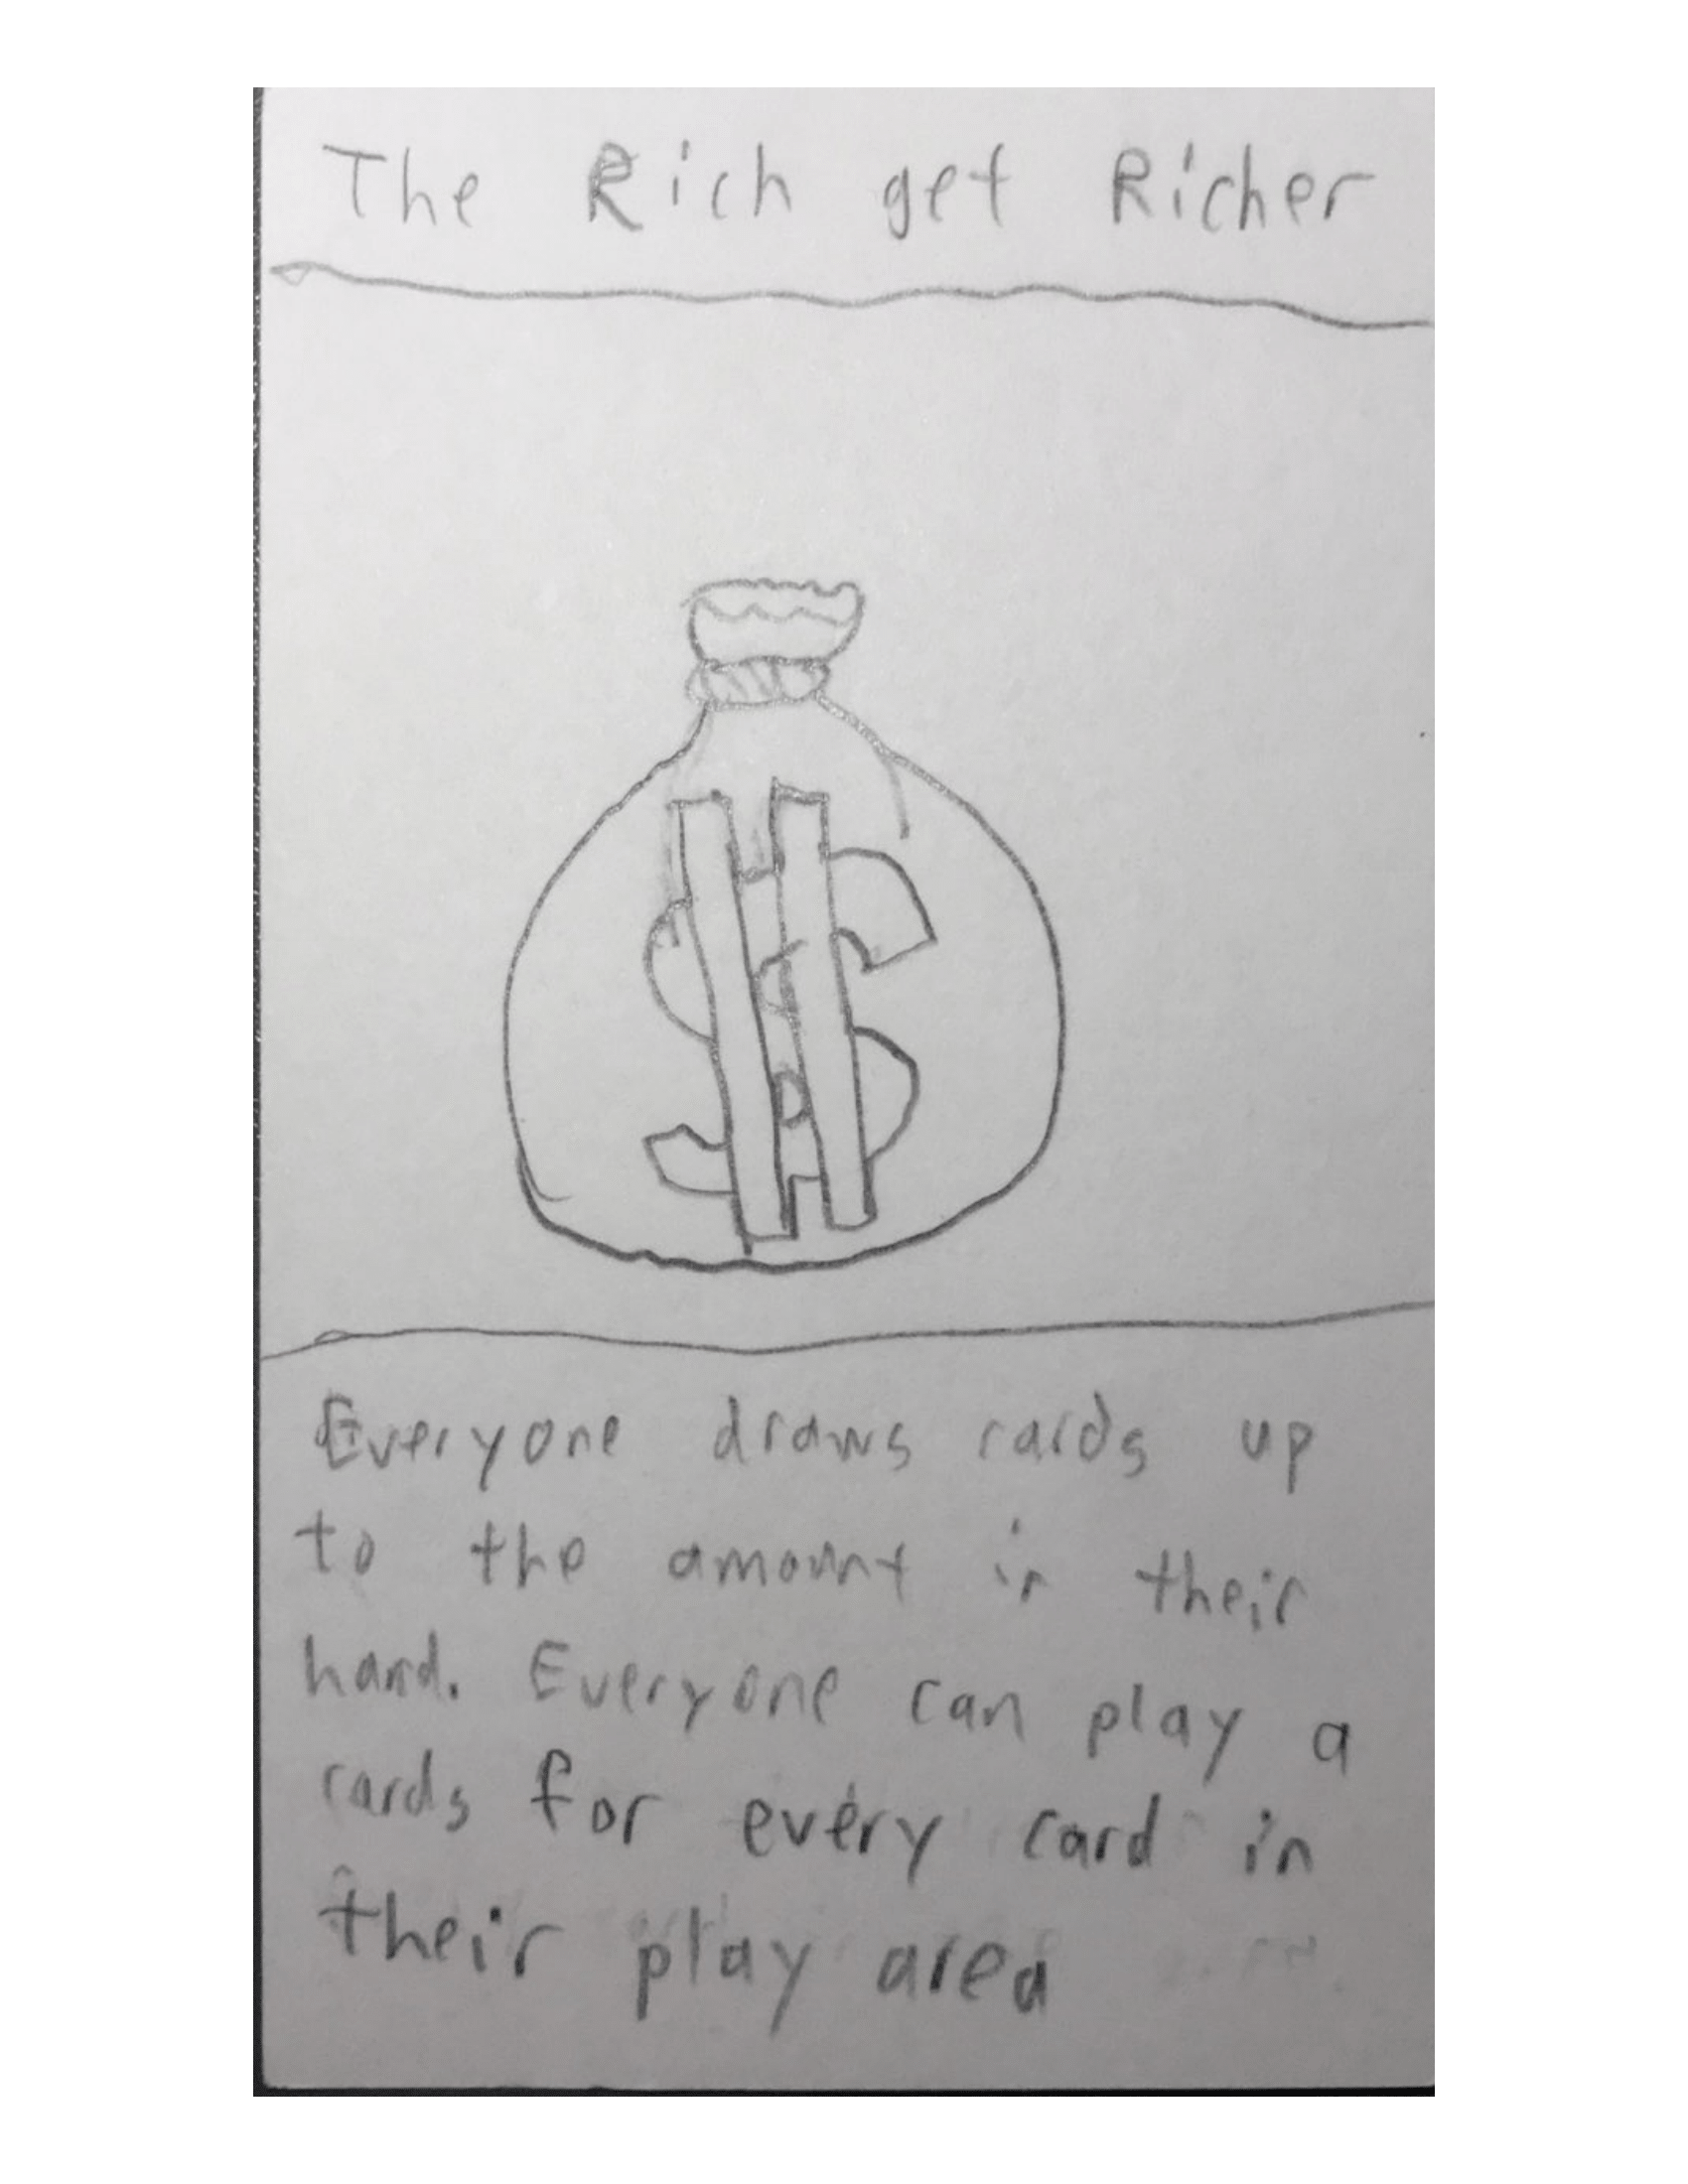 The Rich get Richer
Everyone draws cards up
to the amount in their
hand. Everyone can play a
cards for every card in
their play area